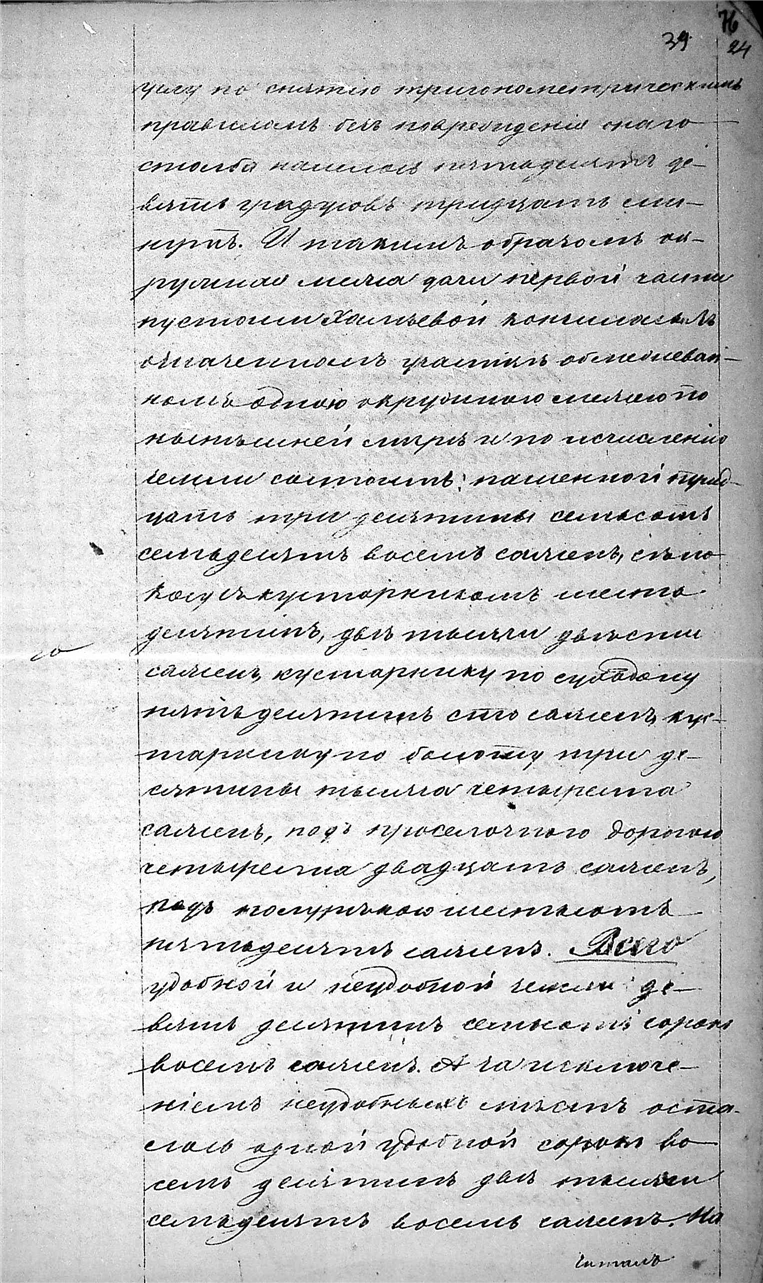 39
76
24
углу по снятію тригонометрическимъ
правиломъ безъ поврежденія онаго
столба нашлось пятьдесятъ де-
вять градусовъ тридцать ми-
нутъ. И такимъ образомъ ок-
ружная межа дачи первой части
пустоши Хамьевой кончилась въ
означенномъ участкѣ обмежеван-
номъ одною окружною межею по
нынѣшней мѣрѣ и по исчисленію
земли состоитъ: пашенной трид-
цать три десятины семьсотъ
семьдесятъ восемь саженъ, сѣно
косу съ кустарникомъ шесть
десятинъ, двѣ тысячи двѣсти
саженъ, кустарнику по суходолу
пять десятинъ сто саженъ, кус-
тарнику по болоту три де-
сятины тысяча четыреста
саженъ, подъ проселочного дорогою
четыреста двадцать саженъ,
подъ полурѣчкою шестьсотъ
пятьдесятъ саженъ. Всего
удобной и неудобной земли де-
вять десятинъ семьсотъ сорокъ
восемь саженъ. А за исключе-
ніемъ неудобныхъ мѣстъ оста-
лось одной удобной сорокъ во
семь десятинъ двѣ тысячи
семьдесятъ восемь саженъ. На
Читалъ